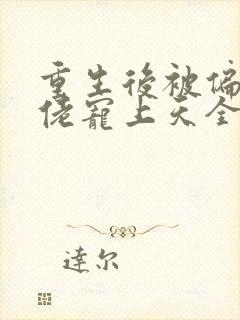 重生後被偏
佬寵上天全
達尔